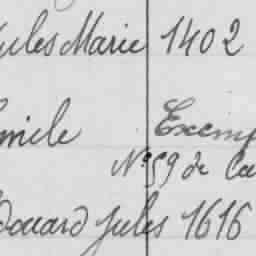 ules Marie 1402
mile Exemp
N° 59 de Ca
douard Jules 1616